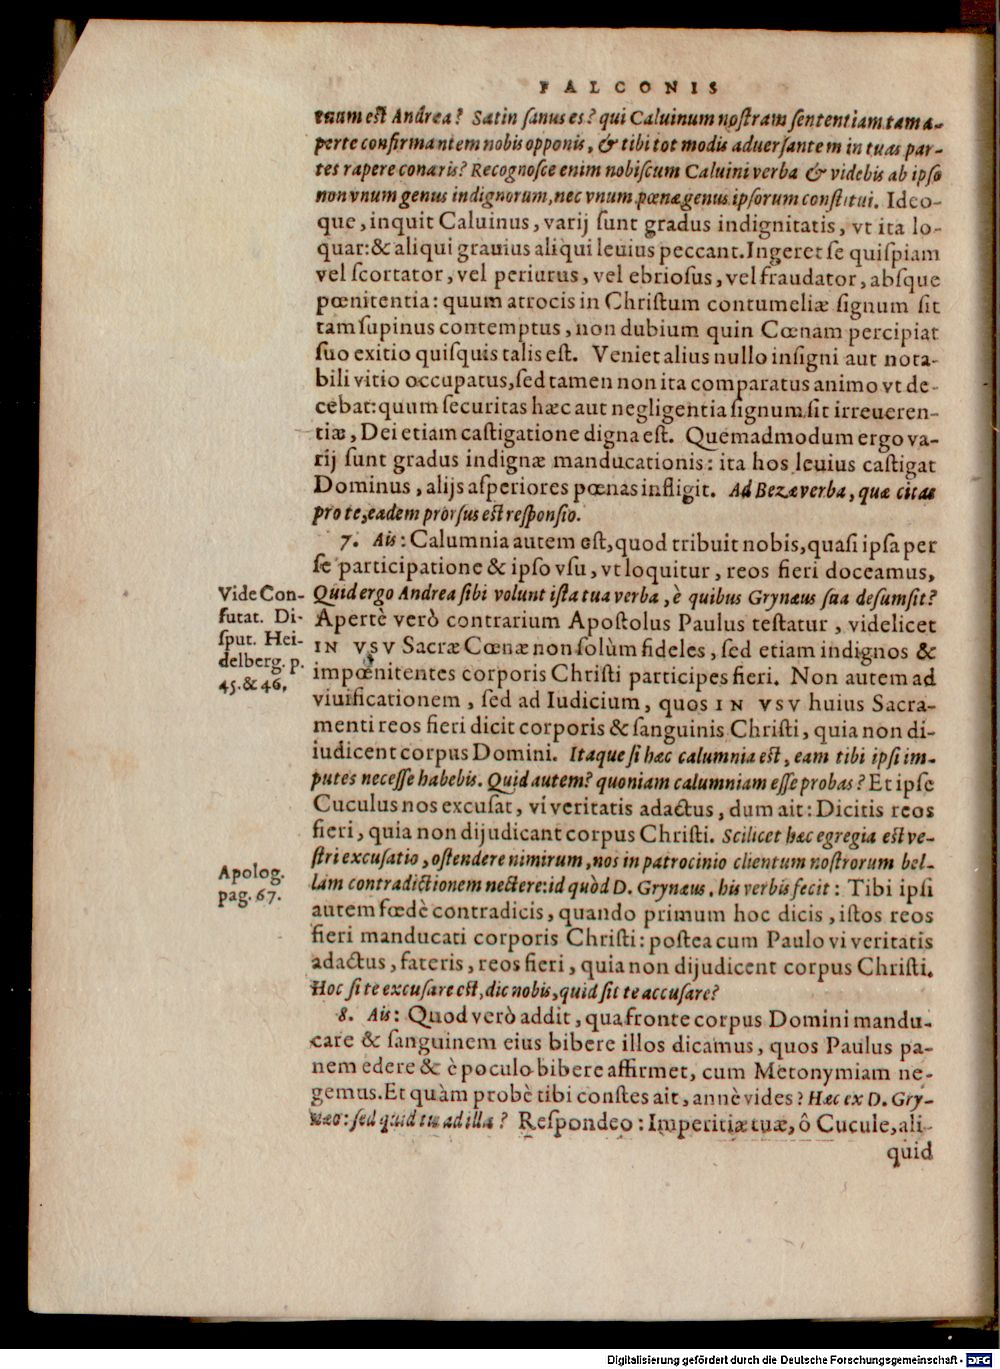 FALCONIS
tuum est Andrea? Satin ſanus es? qui Caluinum noſtram ſententiam tam a-
perte confirmantem nobis opponis, & tibi tot modis aduerſantem in tuas par-
tes rapere conaris? Recognoſce enim nobiſcum Caluini verba & videbis ab ipſo
non vnum genus indignorum, nec vnum pœnæ genus ipſorum conſtitui. Ideo-
que, inquit Caluinus, varij ſunt gradus indignitatis, vt ita lo-
quar: & aliqui grauius aliqui leuius peccant. Ingeret ſe quiſpiam
vel ſcortator, vel periurus, vel ebrioſus, vel fraudator, abſque
pœnitentia: quum atrocis in Chriſtum contumeliæ ſignum ſit
tam ſupinus contemptus, non dubium quin Cœnam percipiat
ſuo exitio quiſquis talis eſt. Veniet alius nullo inſigni aut nota-
bili vitio occupatus, ſed tamen non ita comparatus animo vt de-
cebat: quum ſecuritas hæc aut negligentia ſignum ſit irreueren-
tiæ, Dei etiam caſtigatione digna eſt. Quemadmodum ergo va-
rij ſunt gradus indignæ manducationis: ita hos leuius caſtigat
Dominus, alijs aſperiores pœnas infligit. Ad Bezæ verba, quæ citas
pro te, eadem prorſus eſt reſponſio.
7. Ais: Calumnia autem eſt, quod tribuit nobis, quaſi ipſa per
ſe participatione & ipſo vſu, vt loquitur, reos fieri doceamus,
Vide Con-
futat. Di-
ſput. Hei-
delberg. p.
45. & 46.
Quid ergo Andrea ſibi volunt iſta tua verba, è quibus Grynæus ſua deſumſit?
Apertè verò contrarium Apoſtolus Paulus teſtatur, videlicet
IN VSV Sacræ Cœnæ non ſolùm fideles, ſed etiam indignos &
impœnitentes corporis Chriſti participes fieri. Non autem ad
viuificationem, ſed ad Iudicium, quos IN VSV huius Sacra-
menti reos fieri dicit corporis & ſanguinis Chriſti, quia non di-
iudicent corpus Domini. Itaque ſi hæc calumnia eſt, eam tibi ipſi im-
putes neceſſe habebis. Quid autem? quoniam calumniam eſſe probas? Et ipſe
Cuculus nos excuſat, vi veritatis adactus, dum ait: Dicitis reos
fieri, quia non dijudicant corpus Chriſti. Scilicet hæc egregia eſt ve-
ſtri excuſatio, oſtendere nimirum, nos in patrocinio clientum noſtrorum bel-
Apolog.
pag. 67.
lam contradictionem nectere: id quòd D. Grynæus, his verbis fecit: Tibi ipſi
autem fœdè contradicis, quando primum hoc dicis, iſtos reos
fieri manducati corporis Chriſti: poſtea cum Paulo vi veritatis
adactus, fateris, reos fieri, quia non dijudicent corpus Chriſti.
Hoc ſi te excuſare eſt, dic nobis, quid ſit te accuſare?
8. Ais: Quod verò addit, qua fronte corpus Domini mandu-
care & ſanguinem eius bibere illos dicamus, quos Paulus pa-
nem edere & è poculo bibere affirmet, cum Metonymiam ne-
gemus. Et quàm probè tibi conſtes ait, annè vides? Hæc ex D. Gry-
næo: ſed quid tu ad illa? Reſpondeo: Imperitiæ tuæ, ô Cucule, ali-
quid
Digitalisierung gefördert durch die Deutsche Forschungsgemeinschaft - DFG